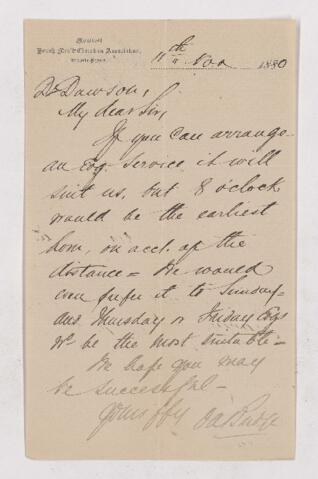 Montreal
Young Men's Christian Association,
11th Nov 1880
Dr Dawson,
My dear Sir,
If you can arrange
an Evg. Service it will
suit us, but 8 o'clock
would be the earliest
hour, on acct. of the
distance = We would
even prefer it to Sunday -
and Thursday or Friday Evgs
wd. be the most suitable -
We hope you may
be successful -
yours ffy Budge